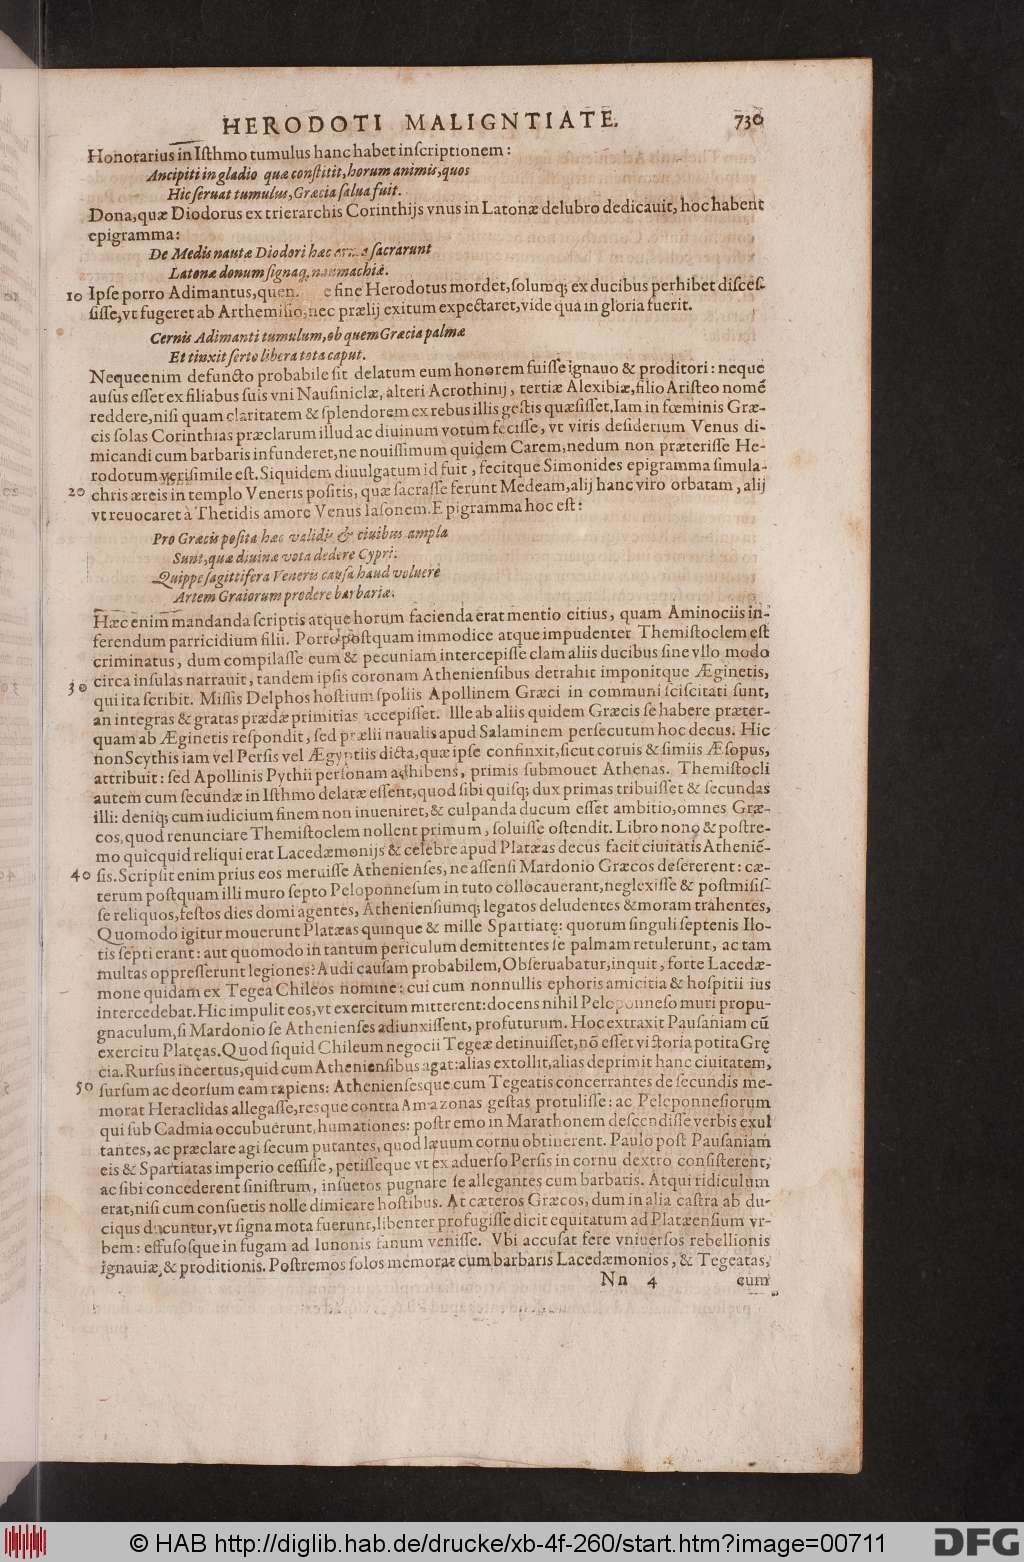 HERODOTI MALIGNTIATE. 730
Honorarius in Isthmo tumulus hanc habet inscriptionem:
Ancipiti in gladio quæ constitit, horum animis, quos
Hic seruat tumulus, Græcia salua fuit.
Dona, quæ Diodorus ex trierarchis Corinthijs vnus in Latonæ delubro dedicauit, hoc habent
epigramma:
De Medis nautæ Diodori hæc sacrarunt
Latonæ donum signaq; naumachiæ.
10 Ipse porro Adimantus, quem e fine Herodotus mordet, solumq; ex ducibus perhibet disces-
sisse, vt fugeret ab Arthemisio, nec prælij exitum expectaret, vide qua in gloria fuerit.
Cernis Adimanti tumulum, ob quem Græcia palmæ
Et tinxit serto libera tota caput.
Neque enim defuncto probabile sit delatum eum honorem fuisse ignauo & proditori: neque
ausus esset ex filiabus suis vni Nausiniclæ, alteri Acrothinij, tertiæ Alexibiæ, filio Aristeo nomē
reddere, nisi quam claritatem & splendorem ex rebus illis gestis quæsisset. Iam in fœminis Græ-
cis solas Corinthias præclarum illud ac diuinum votum fecisse, vt viris desiderium Venus di-
micandi cum barbaris infunderet, ne nouissimum quidem Carem, nedum non præterisse He-
rodotum verisimile est. Siquidem diuulgatum id fuit, fecitque Simonides epigramma simula-
20 chris æreis in templo Veneris positis, quæ sacrasse ferunt Medeam, alij hanc viro orbatam, alij
vt reuocaret à Thetidis amore Venus Iasonem. Epigramma hoc est:
Pro Græcis posita hæc validis & ciuibus ampla
Sunt, quæ diuinæ vota dedere Cypri.
Quippe sagittiferæ Veneris causa haud voluere
Artem Graiorum prodere barbariæ.
Hæc enim mandanda scriptis atque horum facienda erat mentio citius, quam Aminociis in-
ferendum parricidium filii. Porro postquam immodice atque impudenter Themistoclem est
criminatus, dum compilasse eum & pecuniam intercepisse clam aliis ducibus sine vllo modo
circa insulas narrauit, tandem ipsis coronam Atheniensibus detrahit imponitque Æginetis,
30 qui ita scribit. Missis Delphos hostium spoliis Apollinem Græci in communi sciscitati sunt,
an integras & gratas prædæ primitias accepisset. Ille ab aliis quidem Græcis se habere præter-
quam ab Æginetis respondit, sed prælii naualis apud Salaminem persecutum hoc decus. Hic
non Scythis iam vel Persis vel Ægyptiis dicta, quæ ipse confinxit, sicut coruis & simiis Æsopus,
attribuit: sed Apollinis Pythii personam adhibens, primis submouet Athenas. Themistocli
autem cum secundæ in Isthmo delatæ essent, quod sibi quisq; dux primas tribuisset & secundas
illi: deniq; cum iudicium finem non inueniret, & culpanda ducum esset ambitio, omnes Græ-
cos, quod renunciare Themistoclem nollent primum, soluisse ostendit. Libro nono & postre-
mo quicquid reliqui erat Lacedæmonijs & celebre apud Platæas decus facit ciuitatis Atheniē-
40 sis. Scripsit enim prius eos metuisse Athenienses, ne assensi Mardonio Græcos desererent: cæ-
terum postquam illi muro septo Peloponnesum in tuto collocauerant, neglexisse & postmisis-
se reliquos, festos dies domi agentes, Atheniensiumq; legatos deludentes & moram trahentes,
Quomodo igitur mouerunt Platæas quinque & mille Spartiatę: quorum singuli septenis Ilo-
tis septi erant: aut quomodo in tantum periculum demittentes se palmam retulerunt, ac tam
multas oppresserunt legiones? Audi causam probabilem, Obseruabatur, inquit, forte Lacedæ-
mone quidam ex Tegea Chileos nomine: cui cum nonnullis ephoris amicitia & hospitii ius
intercedebat. Hic impulit eos, vt exercitum mitterent: docens nihil Peloponneso muri propu-
gnaculum, si Mardonio se Athenienses adiunxissent, profuturum. Hoc extraxit Pausaniam cū
exercitu Platęas. Quod siquid Chileum negocii Tegeæ detinuisset, nō esset victoria potita Grę
cia. Rursus incertus, quid cum Atheniensibus agat: alias extollit, alias deprimit hanc ciuitatem,
50 sursum ac deorsum eam rapiens: Atheniensesque cum Tegeatis concerrantes de secundis me-
morat Heraclidas allegasse, resque contra Amazonas gestas protulisse: ac Peleponnesiorum
qui sub Cadmia occubuerunt, humationes: postremo in Marathonem descendisse verbis exul
tantes, ac præclare agi secum putantes, quod læuum cornu obtinerent. Paulo post Pausaniam
eis & Spartiatas imperio cessisse, petisseque vt ex aduerso Persis in cornu dextro consisterent,
ac sibi concederent sinistrum, insuetos pugnare se allegantes cum barbaris. Atqui ridiculum
erat, nisi cum consuetis nolle dimicare hostibus. At cæteros Græcos, dum in alia castra ab du-
ciqus ducuntur, vt signa mota fuerunt, libenter profugisse dicit equitatum ad Platæensium vr-
bem: effusosque in fugam ad Iunonis fanum venisse. Vbi accusat fere vniuersos rebellionis
ignauiæ, & proditionis. Postremos solos memorat cum barbaris Lacedæmonios, & Tegeatas,
Nn 4 cum
© HAB http://diglib.hab.de/drucke/xb-4f-260/start.htm?image=00711
DFG